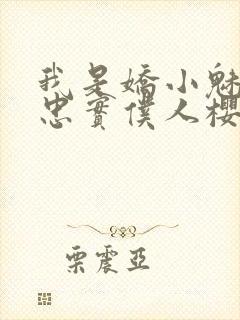 我是嬌小魅
忠實僕人櫻
栗震亞